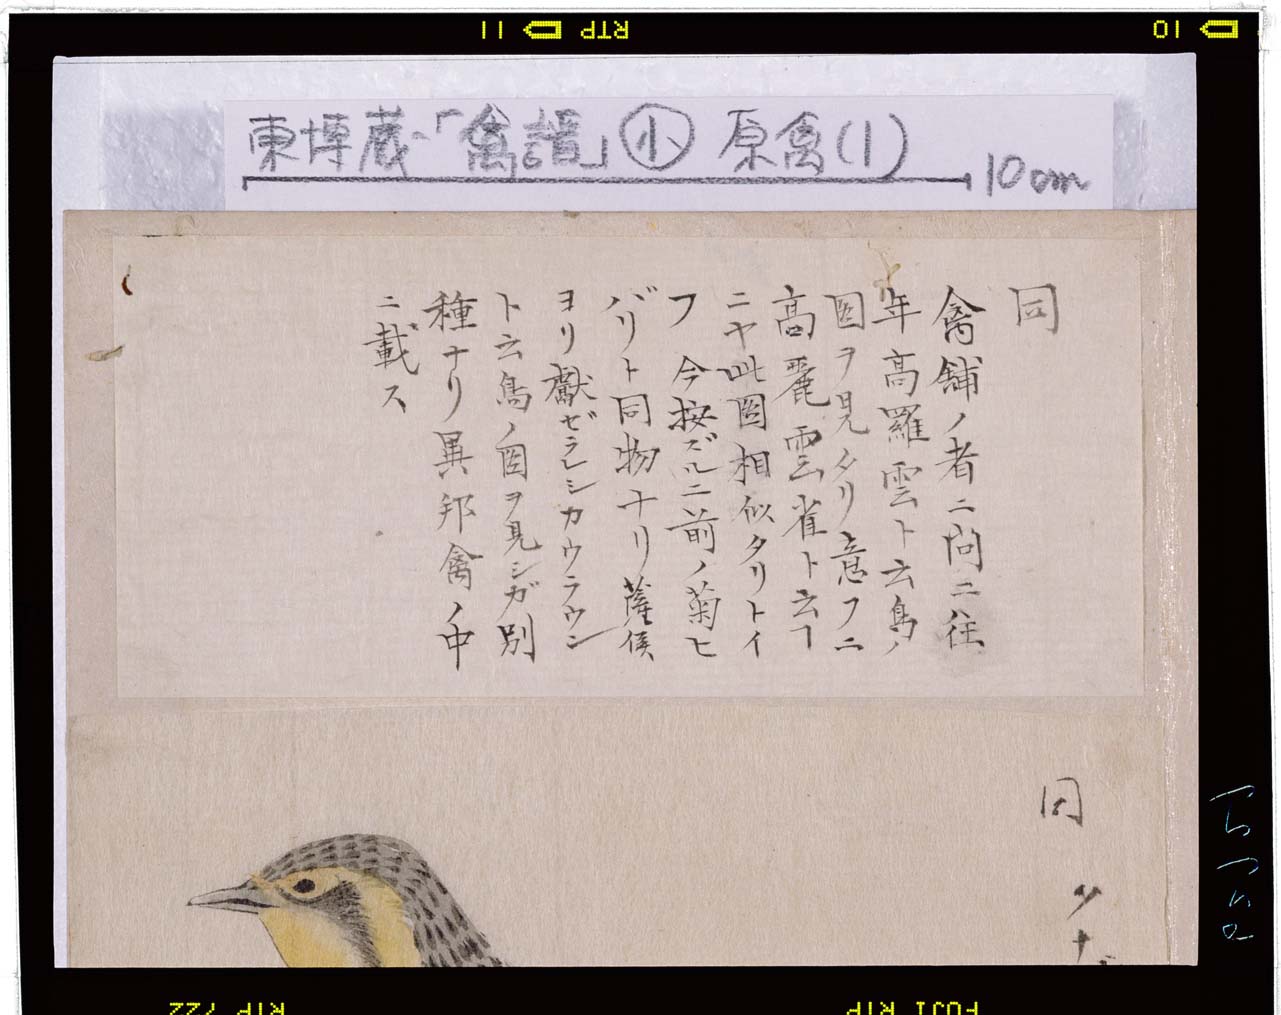 RTP 11
10
東博蔵「禽譜」小 原禽(1)
10cm
同
禽舗ノ者ニ問ニ往
年高羅雲ト云鳥ノ
図ヲ見タリ意フニ
高麗雲雀ト云フ
ニヤ此図相似タリトイ
フ 今按ズルニ前ノ菊ヒ
バリト同物ナリ薩侯
ヨリ獻ゼラレシカウラウン
ト云鳥ノ図ヲ見シガ別
種ナリ異邦禽ノ中
ニ載ス
同
RTP 722
FUJI RTP